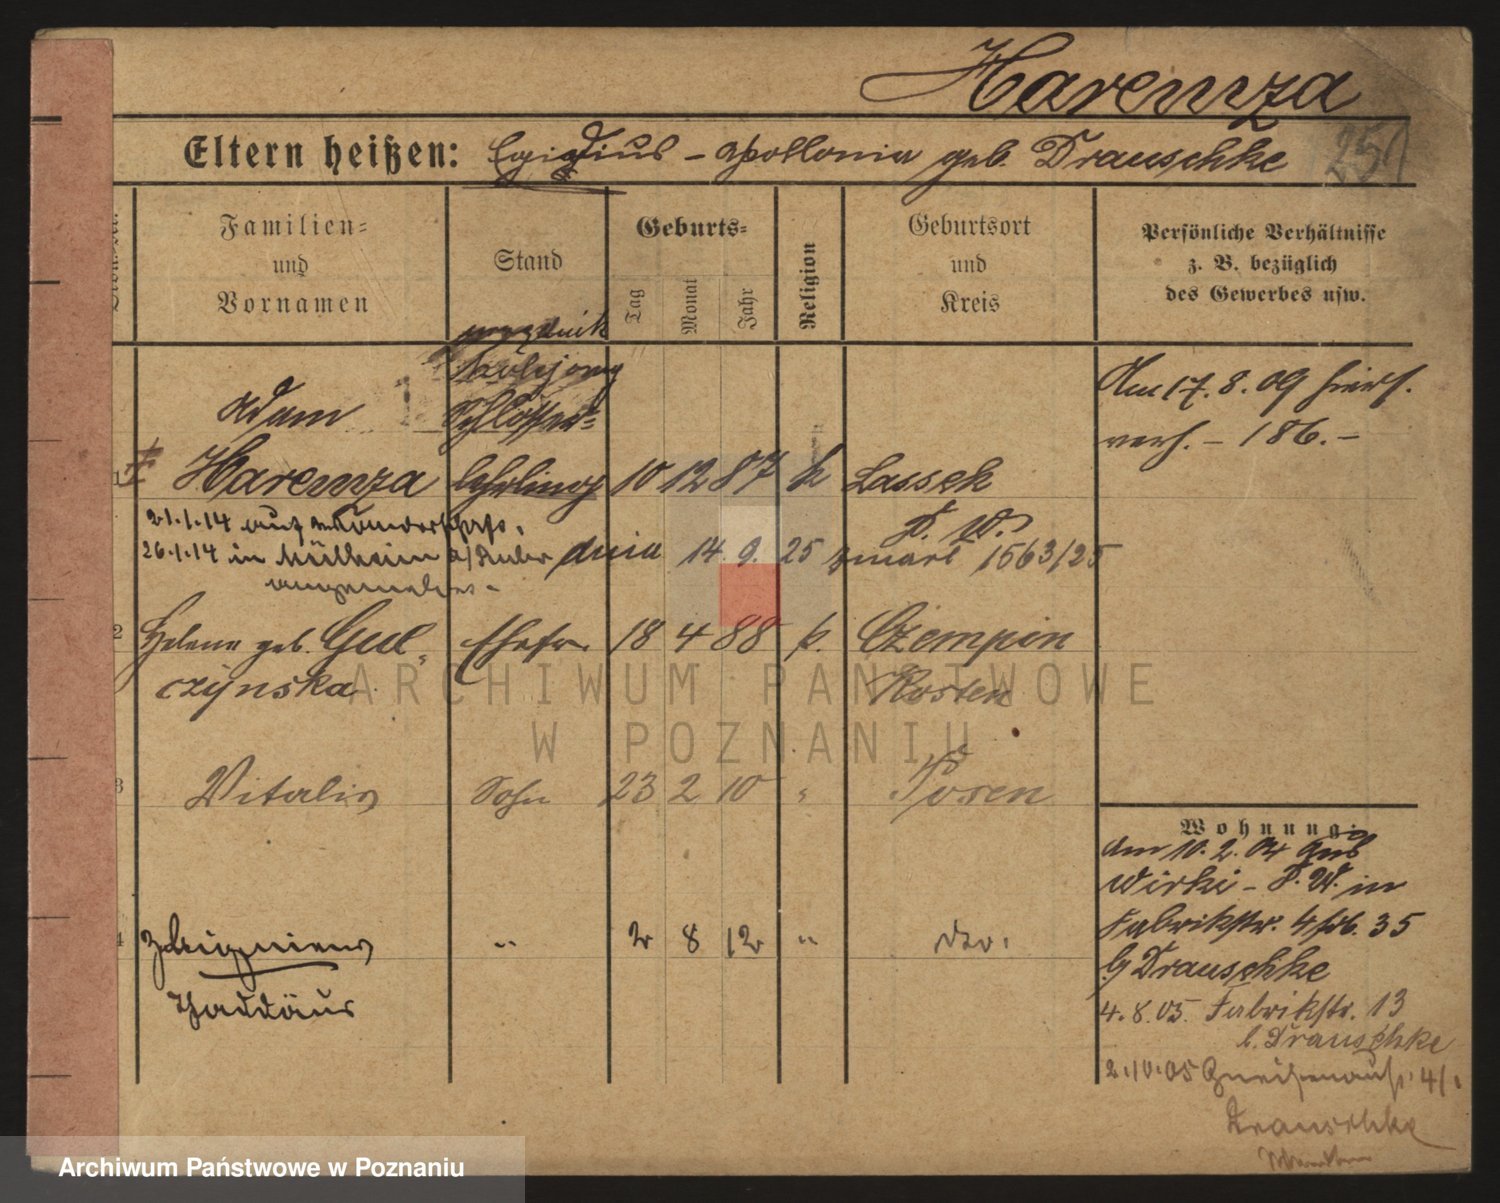 Harenza
Eltern heißen: Egidius - Apollonia geb. Drauschke 251
Familien=
und
Vornamen
Stand
Geburts=
Tag
Monat
Jahr
Religion
Geburtsort
und
Kreis
Persönliche Verhältnisse
z. B. bezüglich
des Gewerbes usw.
Adam
Schlosser=
1 Harenza lehrling 10 12 87 k Lassek
P. W.
Am 17. 8. 09 hiers.
verh. - 186. -
21.1.14 auf Wanderschaft.
26.1.14 in Mülheim a/Ruhr
angemeldet -
dnia 14. 9. 25 zmarł 1563/25
2 Helene geb. Gul- Ehefr. 18 4 88 k. Czempin
czynska Kosten
3 Vitalis Sohn 23 2 10 " Posen
4 Zbigniew " 2 8 12 " do.
Thaddäus
Wohnung:
am 10. 2. 04 aus
Wirki - P. W. in
Fabrikstr. 4 35
b/ Drauschke
4. 8. 05. Fabrikstr. 13
b. Drauschke
2.10.05 Gneisenaustr. 4
Drauschke
ARCHIWUM PAŃSTWOWE
W POZNANIU
Archiwum Państwowe w Poznaniu